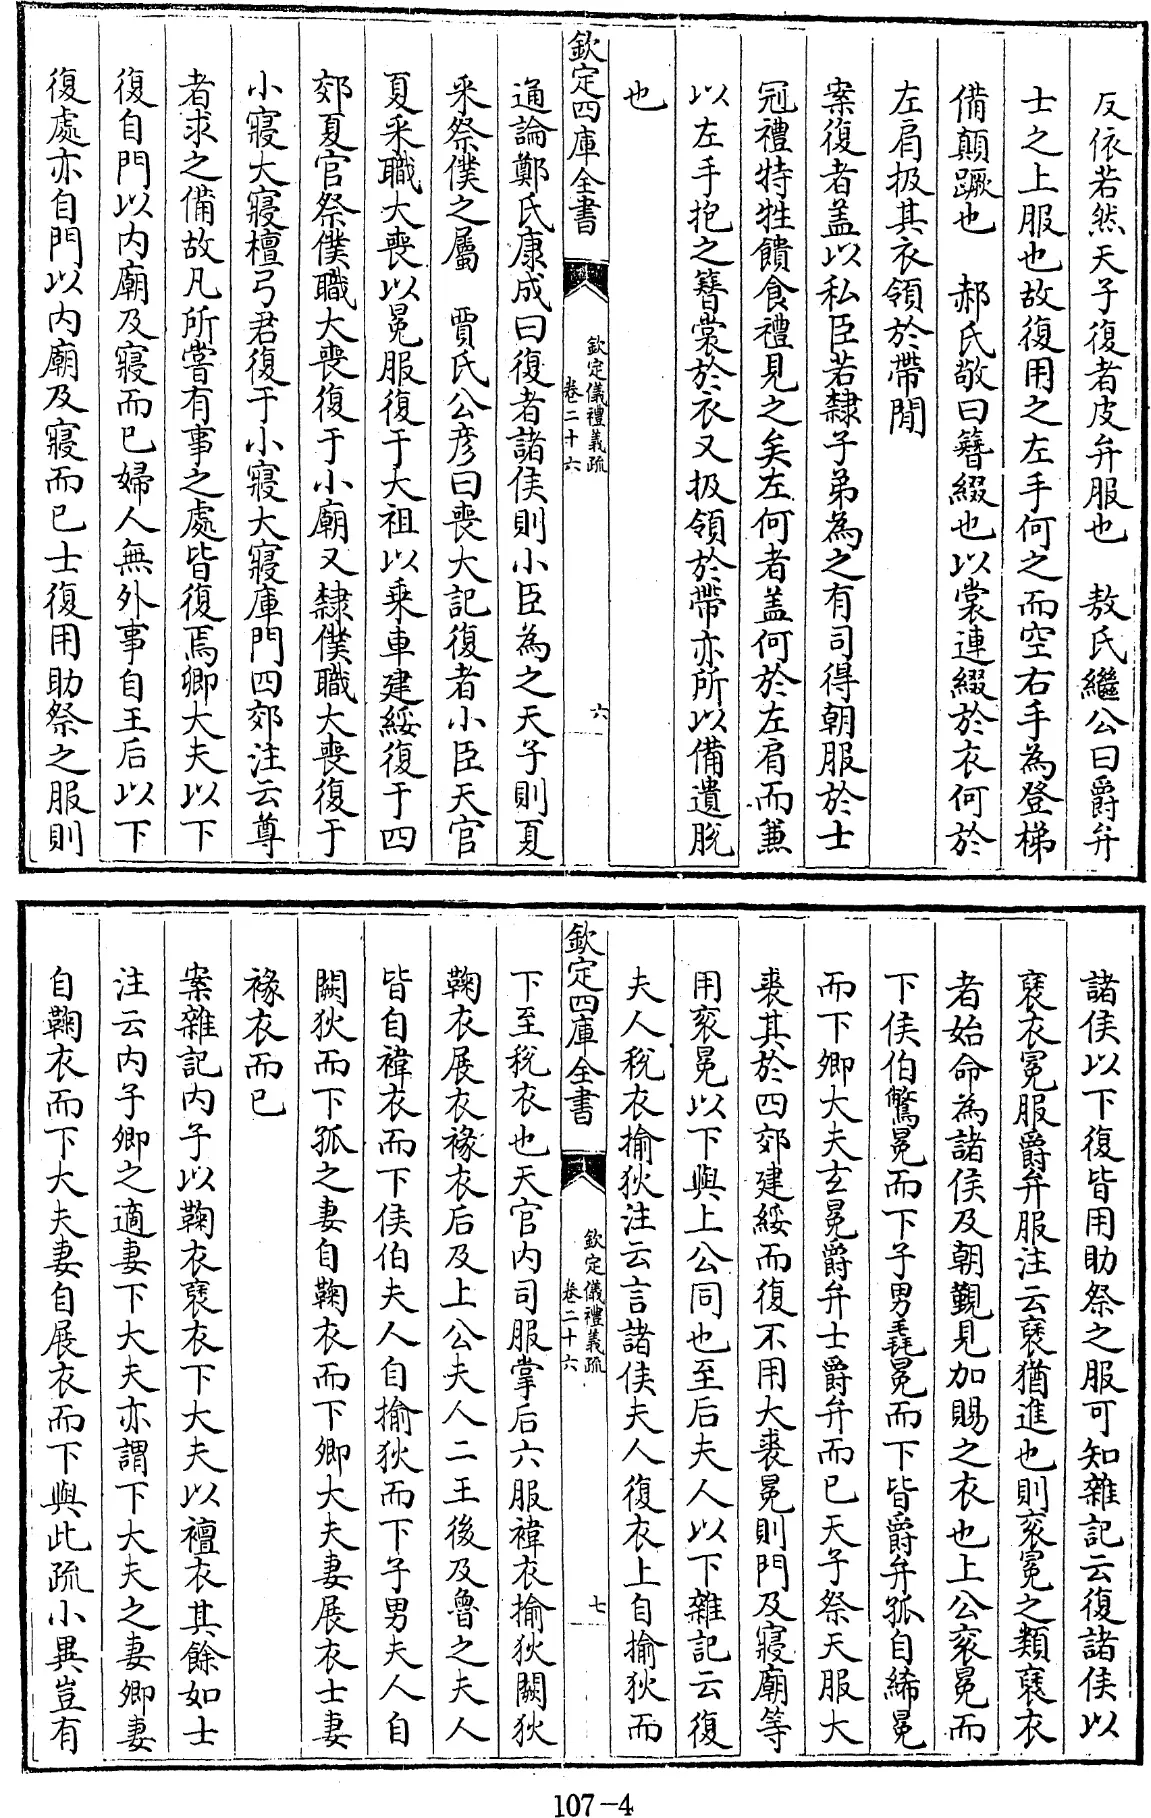 反依若然天子復者皮弁服也　敖氏繼公曰爵弁
士之上服也故復用之左手何之而空右手為登梯
備顛蹶也　郝氏敬曰簪綴也以裳連綴於衣何於
左肩扱其衣領於帶閒
案復者盖以私臣若隸子弟為之有司得朝服於士
冠禮特牲饋食禮見之矣左何者盖何於左肩而兼
以左手抱之簪裳於衣又扱領於帶亦所以備遺脫
也
欽定四庫全書
欽定儀禮義疏
卷二十六
六
通論鄭氏康成曰復者諸侯則小臣為之天子則夏
采祭僕之屬　賈氏公彥曰喪大記復者小臣天官
夏采職大喪以冕服復于大祖以乗車建綏復于四
郊夏官祭僕職大喪復于小廟又隸僕職大喪復于
小寢大寢檀弓君復于小寢大寢庫門四郊注云尊
者求之備故凡所嘗有事之處皆復焉卿大夫以下
復自門以内廟及寢而已婦人無外事自王后以下
復處亦自門以内廟及寢而已士復用助祭之服則
諸侯以下復皆用助祭之服可知雜記云復諸侯以
襃衣冕服爵弁服注云襃猶進也則衮冕之類襃衣
者始命為諸侯及朝覲見加賜之衣也上公衮冕而
下侯伯鷩冕而下子男毳冕而下皆爵弁孤自絺冕
而下卿大夫玄冕爵弁士爵弁而已天子祭天服大
裘其於四郊建綏而復不用大裘冕則門及寢廟等
用衮冕以下與上公同也至后夫人以下雜記云復
夫人稅衣揄狄注云言諸侯夫人復衣上自揄狄而
欽定四庫全書
欽定儀禮義疏
卷二十六
七
下至稅衣也天官内司服掌后六服褘衣揄狄闕狄
鞠衣展衣褖衣后及上公夫人二王後及魯之夫人
皆自褘衣而下侯伯夫人自揄狄而下子男夫人自
闕狄而下孤之妻自鞠衣而下卿大夫妻展衣士妻
褖衣而已
案雜記内子以鞠衣襃衣下大夫以襢衣其餘如士
注云内子卿之適妻下大夫亦謂下大夫之妻卿妻
自鞠衣而下大夫妻自展衣而下與此疏小異豈有
107-4